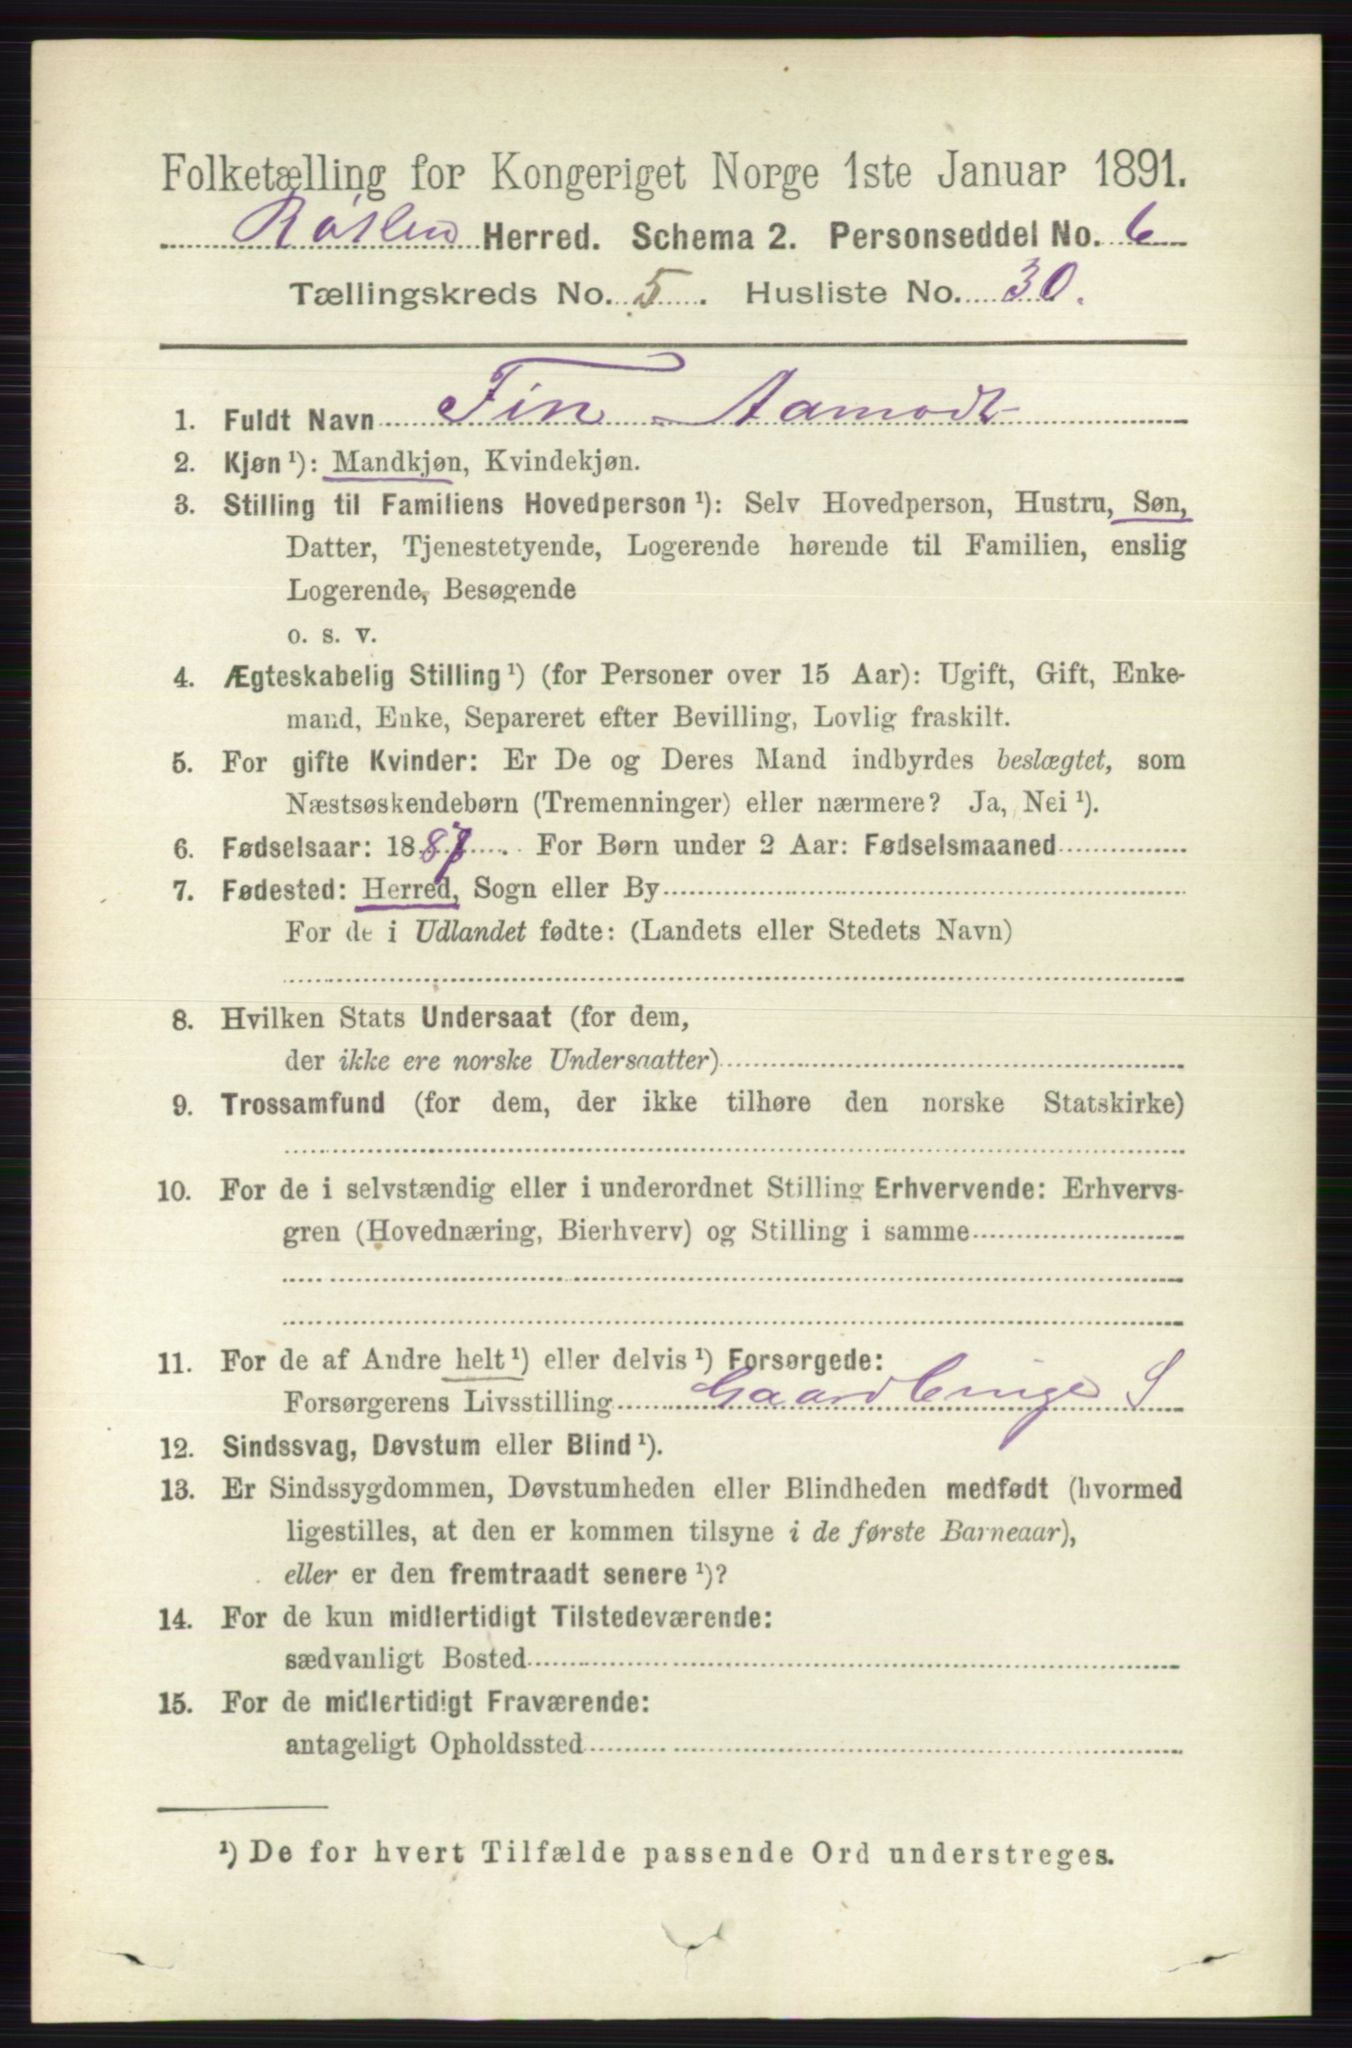 Folketælling for Kongeriget Norge 1ste Januar 1891.
Herred. Schema 2. Personseddel No. 6
Tællingskreds No. 5. Husliste No. 30.
1. Fuldt Navn Fin Aamodt
2. Kjøn ¹): Mandkjøn, Kvindekjøn.
3. Stilling til Familiens Hovedperson ¹): Selv Hovedperson, Hustru, Søn,
Datter, Tjenestetyende, Logerende hørende til Familien, enslig
Logerende, Besøgende
o. s. v.
4. Ægteskabelig Stilling ¹) (for Personer over 15 Aar): Ugift, Gift, Enke-
mand, Enke, Separeret efter Bevilling, Lovlig fraskilt.
5. For gifte Kvinder: Er De og Deres Mand indbyrdes beslægtet, som
Næstsøskendebørn (Tremenninger) eller nærmere? Ja, Nei ¹).
6. Fødselsaar: 1887. For Børn under 2 Aar: Fødselsmaaned
7. Fødested: Herred, Sogn eller By
For de i Udlandet fødte: (Landets eller Stedets Navn)
8. Hvilken Stats Undersaat (for dem,
der ikke ere norske Undersaatter)
9. Trossamfund (for dem, der ikke tilhøre den norske Statskirke)
10. For de i selvstændig eller i underordnet Stilling Erhvervende: Erhvervs-
gren (Hovednæring, Bierhverv) og Stilling i samme
11. For de af Andre helt ¹) eller delvis ¹) Forsørgede:
Forsørgerens Livsstilling S
12. Sindssvag, Døvstum eller Blind ¹).
13. Er Sindssygdommen, Døvstumheden eller Blindheden medfødt (hvormed
ligestilles, at den er kommen tilsyne i de første Barneaar),
eller er den fremtraadt senere ¹)?
14. For de kun midlertidigt Tilstedeværende:
sædvanligt Bosted
15. For de midlertidigt Fraværende:
antageligt Opholdssted
¹) De for hvert Tilfælde passende Ord understreges.